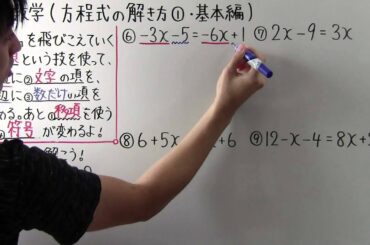 数学(方程式の解き方①・基本編)
を飛びこえていく
という技を使って、
に文字の項を、
に数だけの項を
める。あと移項を使う
符号が変わるよ!
⑥ -3x-5=-6x+1
⑦ 2x-9=3x
⑧ 6+5x
x+6
⑨ 12-x-4=8x+